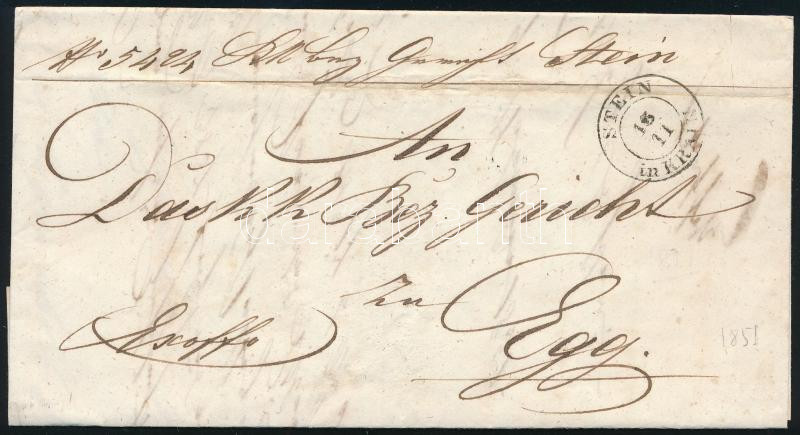 No 5424 KK bez Gericht Stein
STEIN
13
11
in KRAIN
An
Das KK Bez. Gericht
darabanth
zu
Exoffo
Egg.
1851